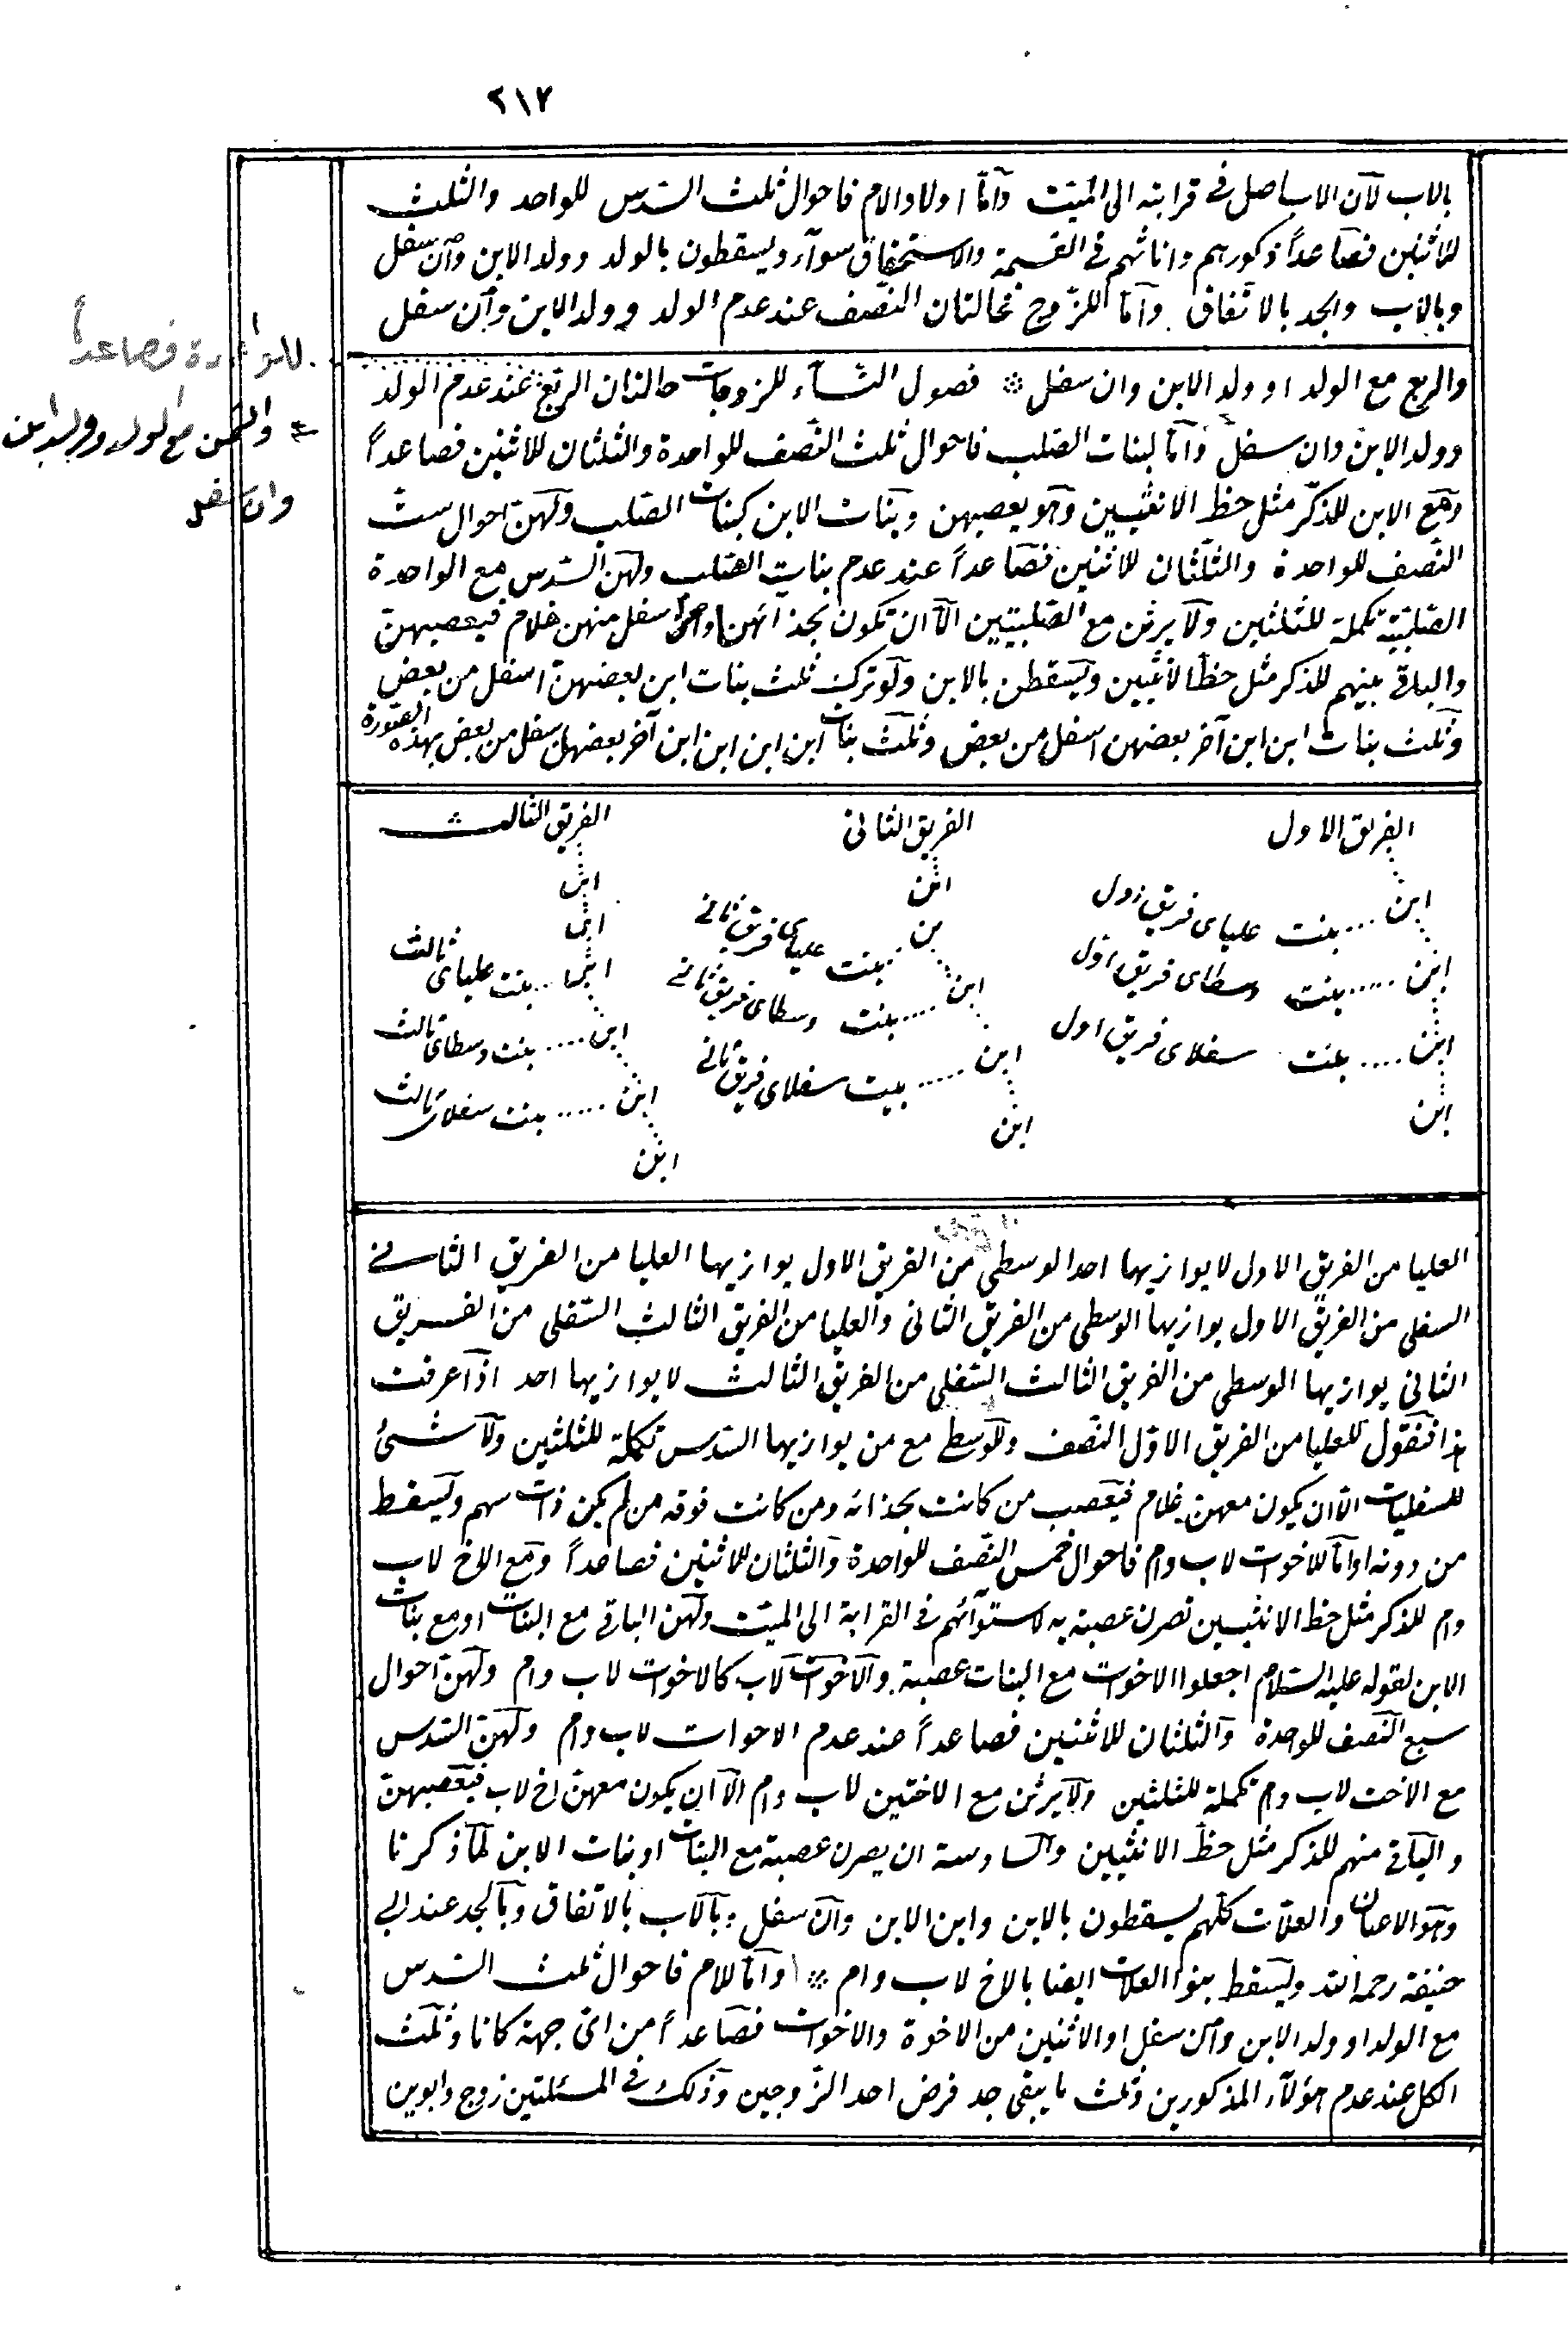 ٢١٧
بالاب لآن الاب اصل فى قرابته الى الميت وآما اولاد الام فاحوال ثلث السدس للواحد والثلث
للاثنين فصاعداً ذكورهم واناثهم فى القسمة والاستحقاق سوآء ويسقطون بالولد وولد الابن وآن سفل
وبالاب والجد بالاتفاق وآما للزوج فحالتان النصف عند عدم الولد وولد الابن وآن سفل
والربع مع الولد او ولد الابن وان سفل فصول النسآء للزوجات حالتان الربع عند عدم الولد
للواحدة فصاعداً
وولد الابن وان سفل وآما لبنات الصلب فاحوال ثلث النصف للواحدة والثلثان للاثنين فصاعداً
والثمن مع الولد وولد الابن
وان سفل
ومع الابن للذكر مثل حظ الانثيين وهو يعصبهن وبنات الابن كبنات الصلب ولهن احوال ست
النصف للواحدة والثلثان للاثنين فصاعداً عند عدم بنات الصلب ولهن السدس مع الواحدة
الصلبية تكملة للثلثين ولا يرثن مع الصلبيتين الا ان تكون بحذائهن او اسفل منهن غلام فيعصبهن
والباقى بينهم للذكر مثل حظ الانثيين ويسقطن بالابن ولو ترك ثلث بنات ابن بعضهن اسفل من بعض
وثلث بنات ابن ابن آخر بعضهن اسفل من بعض وثلث بنات ابن ابن ابن آخر بعضهن اسفل من بعض بهذه الصورة
الفريق الاول الفريق الثانى الفريق الثالث
ابن ابن ابن
ابن بنت علياى فريق اول بن بنت علياى فريق ثانى ابن
ابن بنت وسطاى فريق اول ابن بنت وسطاى فريق ثانى ابن بنت علياى ثالث
ابن بنت سفلاى فريق اول ابن بيت سفلاى فريق ثانى ابن بنت وسطاى ثالث
ابن ابن ابن بنت سفلاى ثالث
ابن
العليا من الفريق الاول لا يوازيها احد الوسطى من الفريق الاول يوازيها العليا من الفريق الثانى
السفلى من الفريق الاول يوازيها الوسطى من الفريق الثانى والعليا من الفريق الثالث السفلى من الفريق
الثانى يوازيها الوسطى من الفريق الثالث السفلى من الفريق الثالث لا يوازيها احد اذآ عرفت
هذا فنقول للعليا من الفريق الاول النصف وللوسطى مع من يوازيها السدس تكملة للثلثين ولا شئ
للسفليات الا ان يكون معهن غلام فيعصب من كانت بحذائه ومن كانت فوقه من لم يكن ذات سهم ويسقط
من دونه وآما للاخوات لاب وام فاحوال خمس النصف للواحدة والثلثان للاثنين فصاعداً ومع الاخ لاب
وام للذكر مثل حظ الانثيين تصرن عصبة به لاستوآئهم فى القرابة الى الميت ولهن الباقى مع البنات او مع بنات
الابن لقوله عليه السلام اجعلوا الاخوات مع البنات عصبة والاخوات لاب كالاخوات لاب وام ولهن احوال
سبع النصف للواحدة والثلثان للاثنين فصاعداً عند عدم الاخوات لاب وام ولهن السدس
مع الاخت لاب وام تكملة للثلثين ولا يرثن مع الاختين لاب وام الا ان يكون معهن اخ لاب فيعصبهن
والباقى منهم للذكر مثل حظ الانثيين والسادسة ان يصرن عصبة مع البنات او بنات الابن لما ذكرنا
وبنو الاعيان والعلات كلهم يسقطون بالابن وابن الابن وآن سفل وبالاب بالاتفاق وبالجد عند ابى
حنيفة رحمه الله ويسقط بنو العلات ايضا بالاخ لاب وام وآما للام فاحوال ثلث السدس
مع الولد او ولد الابن وآن سفل او الاثنين من الاخوة والاخوات فصاعداً من اى جهة كانا وثلث
الكل عند عدم هؤلآء المذكورين وثلث ما يبقى بعد فرض احد الزوجين وذلك فى المسئلتين زوج وابوين